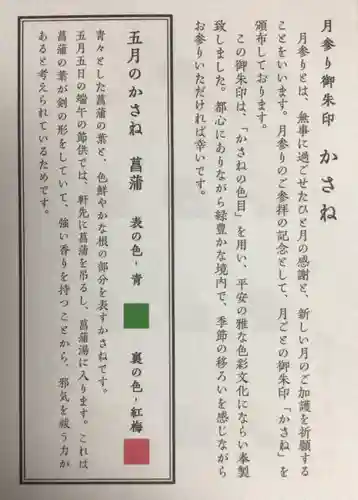 月参り御朱印 かさね
月参りとは、無事に過ごせたひと月の感謝と、新しい月のご加護を祈願する
ことをいいます。月参りのご参拝の記念として、月ごとの御朱印「かさね」を
頒布しております。
この御朱印は、「かさねの色目」を用い、平安の雅な色彩文化にならい奉製
致しました。都心にありながら緑豊かな境内で、季節の移ろいを感じながら
お参りいただければ幸いです。
五月のかさね 菖蒲 表の色・青 裏の色・紅梅
青々とした菖蒲の葉と、色鮮やかな根の部分を表すかさねです。
五月五日の端午の節供では、軒先に菖蒲を吊るし、菖蒲湯に入ります。これは
菖蒲の葉が剣の形をしていて、強い香りを持つことから、邪気を祓う力が
あると考えられているためです。